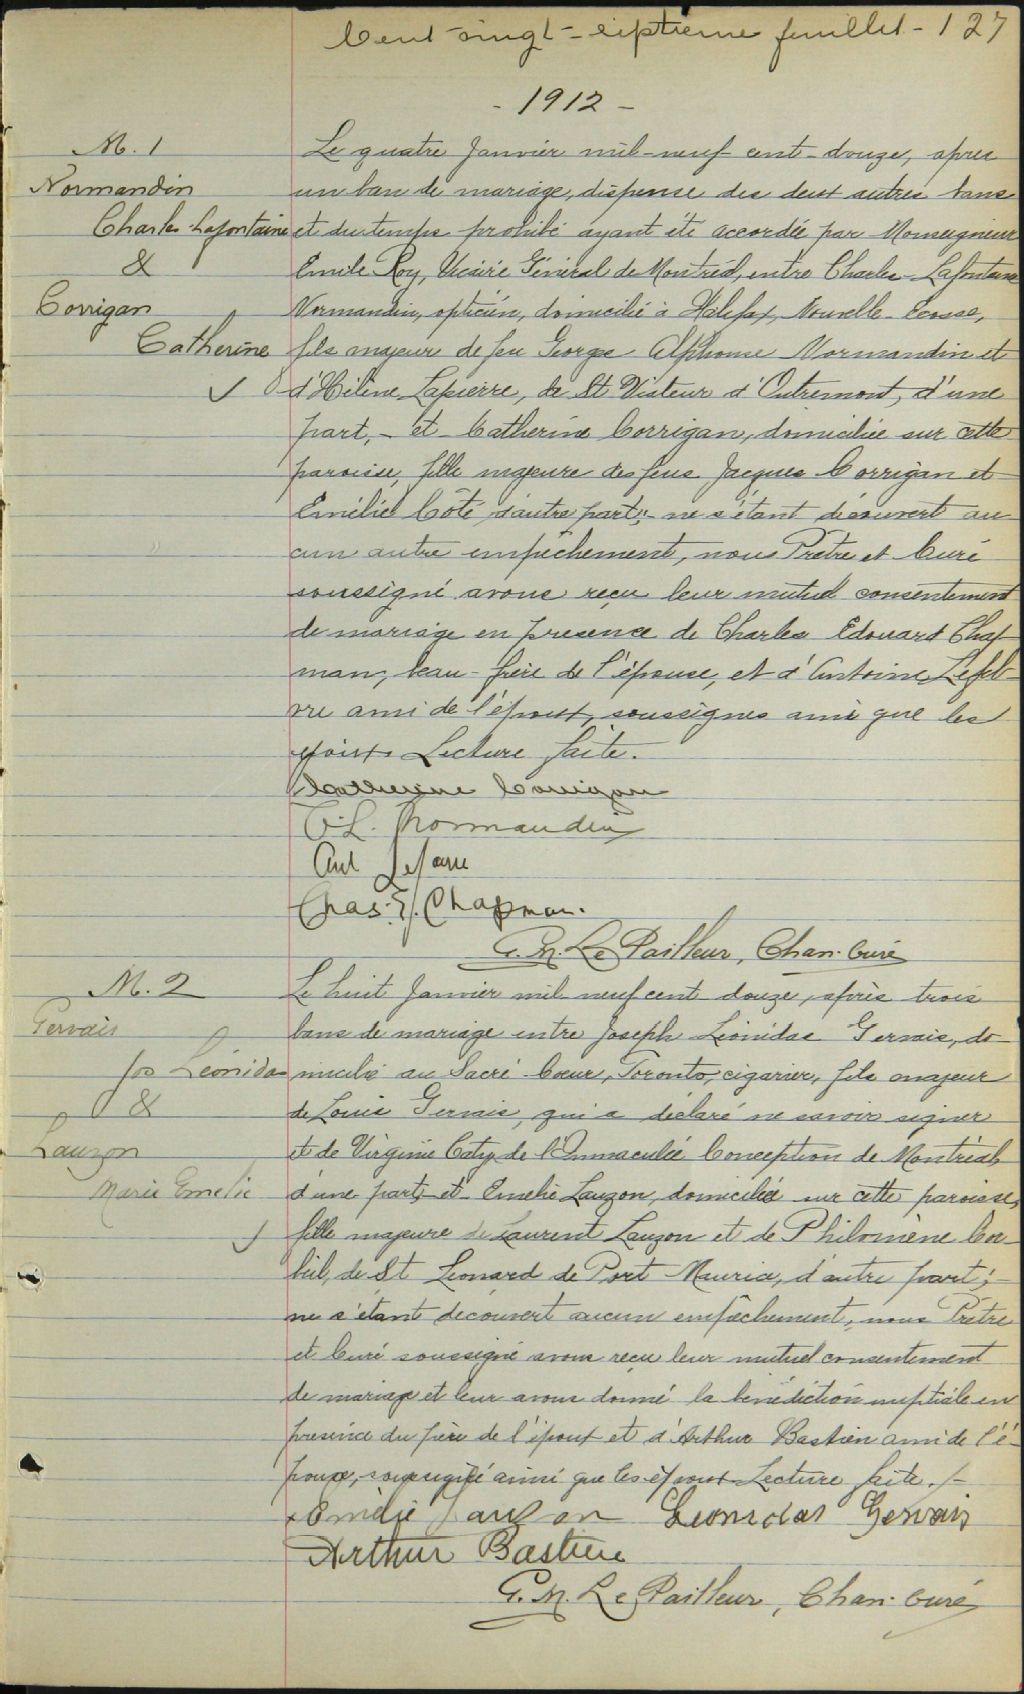 Cent-vingt-septième feuillet - 127
- 1912 -
M. 1
Normandin
Charles-Lafontaine
&
Corrigan
Catherine
Le quatre Janvier mil-neuf cent-douze, après
un ban de mariage, dispense des deux autres bans
et du temps prohibé ayant été accordée par Monseigneur
Emile Roy, Vicaire Général de Montréal, entre Charles-Lafontaine
Normandin, opticien, domicilié à Halifax, Nouvelle-Ecosse,
fils majeur de feu George Alphonse Normandin et
d'Hélène Lapierre, de St Viateur d'Outremont, d'une
part, - et Catherine Corrigan, domiciliée sur cette
paroisse, fille majeure des feus Jacques Corrigan et
Emélie Côté d'autre part; - ne s'étant découvert au
cun autre empêchement, nous Prêtre et Curé
soussigné avons reçu leur mutuel consentement
de mariage en présence de Charles Edouard Chap-
man, beau-frère de l'épouse, et d'Antoine Lefeb-
vre ami de l'époux, soussignés ainsi que les
époux. Lecture faite.
Catherine Corrigan
C. L. Normandin
Ant
Chas. E. Chapman.
G. M. Le Pailleur, Chan. Curé
M. 2
Gervais
Jos Léonidas
&
Lauzon
Marie Emelie
Le huit Janvier mil neuf cent douze, après trois
bans de mariage entre Joseph Léonidas Gervais, do-
micilié au Sacré Coeur, Toronto, cigarier, fils majeur
de Louis Gervais, qui a déclaré ne savoir signer
et de Virginie Caty, de l'Immaculée Conception de Montréal,
d'une part, et Emelie Lauzon, domiciliée sur cette paroisse,
fille majeure de Laurent Lauzon et de Philomène Cor-
beil, de St Léonard de Port-Maurice, d'autre part; -
ne s'étant découvert aucun empêchement, nous Prêtre
et Curé soussigné avons reçu leur mutuel consentement
de mariage et leur avons donné la bénédiction nuptiale en
présence du père de l'époux et d'Arthur Bastien ami de l'é-
poux, soussigné ainsi que les époux. Lecture faite. -
Emélie Lauzon Leonidas Gervais
Arthur Bastien
G. M. Le Pailleur, Chan. Curé